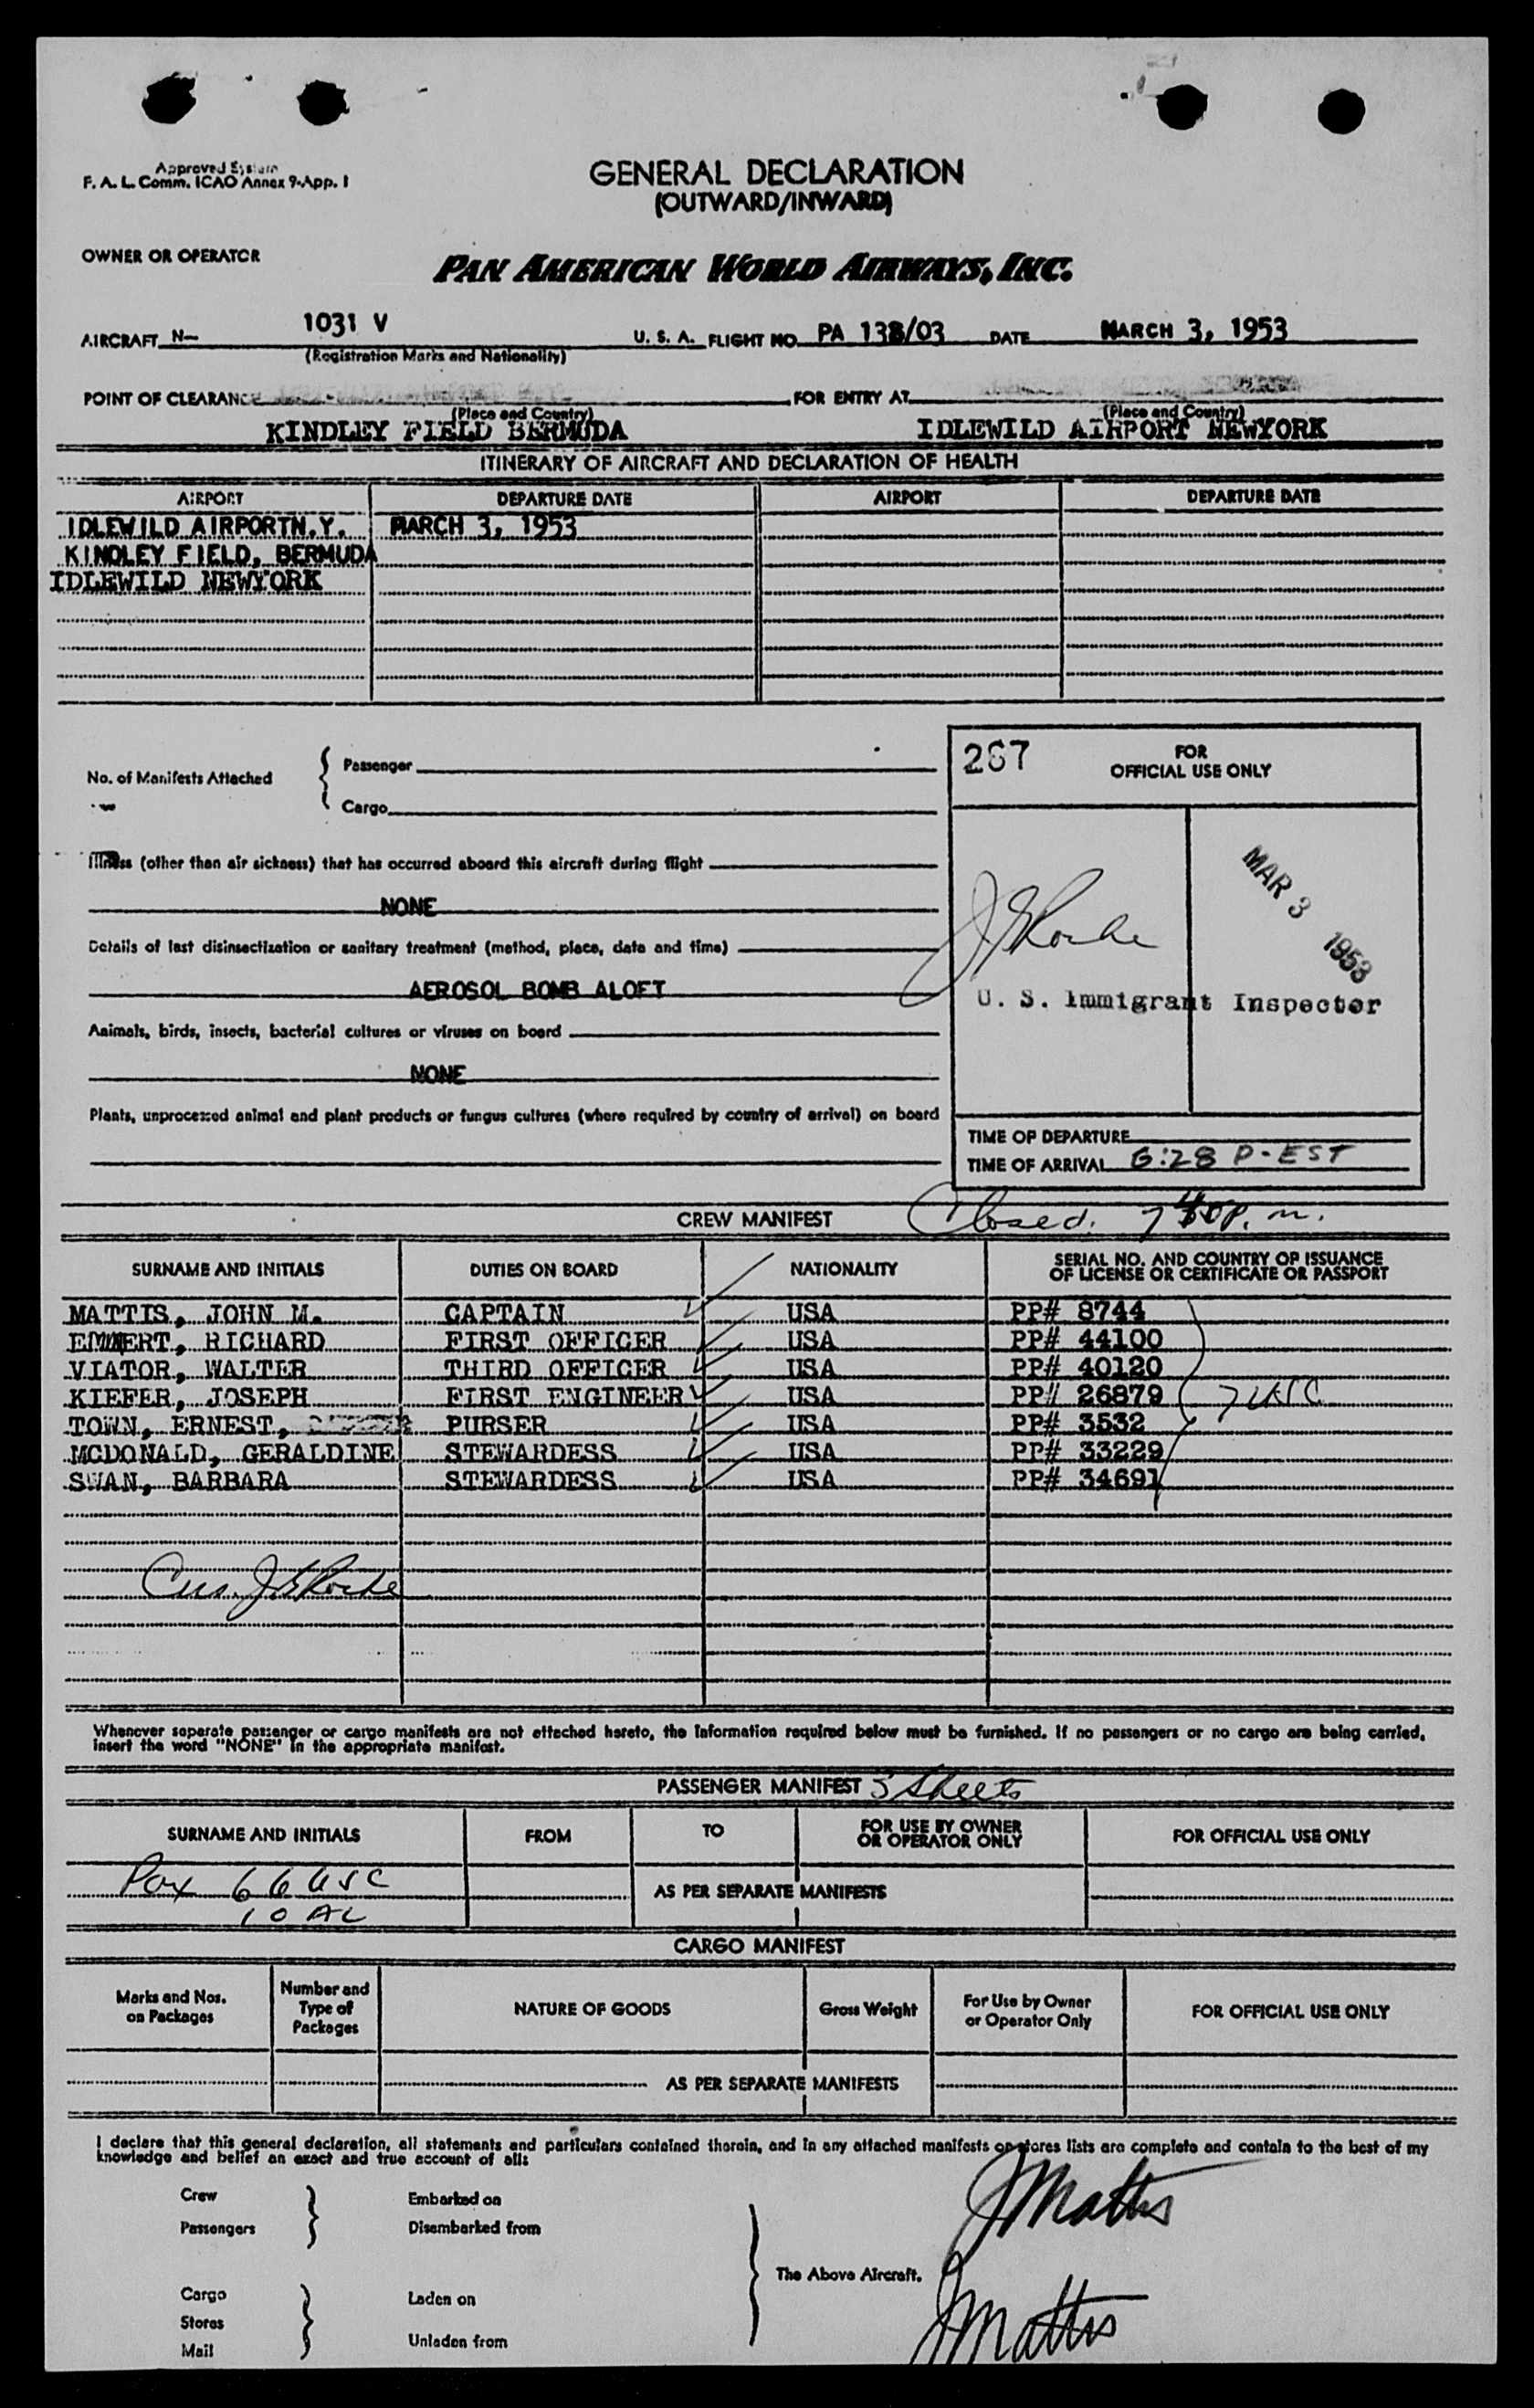 Approved System
F. A. L. Comm. ICAO Annex 9-App. I
GENERAL DECLARATION
(OUTWARD/INWARD)
OWNER OR OPERATOR
PAN AMERICAN WORLD AIRWAYS, INC.
AIRCRAFT N— 1031 V U. S. A. FLIGHT NO. PA 138/03 DATE MARCH 3, 1953
(Registration Marks and Nationality)
POINT OF CLEARANCE FOR ENTRY AT
(Place and Country) (Place and Country)
KINDLEY FIELD BERMUDA IDLEWILD AIRPORT NEWYORK
ITINERARY OF AIRCRAFT AND DECLARATION OF HEALTH
AIRPORT DEPARTURE DATE AIRPORT DEPARTURE DATE
IDLEWILD AIRPORTN.Y. MARCH 3, 1953
KINDLEY FIELD, BERMUDA
IDLEWILD NEWYORK
267 FOR
OFFICIAL USE ONLY
No. of Manifests Attached
Passenger
Cargo
Illness (other than air sickness) that has occurred aboard this aircraft during flight
NONE
Details of last disinsectization or sanitary treatment (method, place, date and time)
AEROSOL BOMB ALOFT
Animals, birds, insects, bacterial cultures or viruses on board
NONE
Plants, unprocessed animal and plant products or fungus cultures (where required by country of arrival) on board
MAR 3 1953
U. S. Immigrant Inspector
TIME OF DEPARTURE
TIME OF ARRIVAL 6:28 P-EST
CREW MANIFEST Closed. p.m.
SURNAME AND INITIALS DUTIES ON BOARD NATIONALITY SERIAL NO. AND COUNTRY OF ISSUANCE
OF LICENSE OR CERTIFICATE OR PASSPORT
MATTIS, JOHN M. CAPTAIN USA PP# 8744
EMMERT, RICHARD FIRST OFFICER USA PP# 44100
VIATOR, WALTER THIRD OFFICER USA PP# 40120
KIEFER, JOSEPH FIRST ENGINEER USA PP# 26879 7 USC
TOWN, ERNEST, PURSER USA PP# 3532
MCDONALD, GERALDINE STEWARDESS USA PP# 33229
SWAN, BARBARA STEWARDESS USA PP# 34691
Whenever separate passenger or cargo manifests are not attached hereto, the information required below must be furnished. If no passengers or no cargo are being carried,
insert the word "NONE" in the appropriate manifest.
PASSENGER MANIFEST 5 Sheets
SURNAME AND INITIALS FROM TO FOR USE BY OWNER
OR OPERATOR ONLY FOR OFFICIAL USE ONLY
Pax 66 USC AS PER SEPARATE MANIFESTS
10 AL
CARGO MANIFEST
Marks and Nos.
on Packages
Number and
Type of
Packages
NATURE OF GOODS Gross Weight
For Use by Owner
or Operator Only
FOR OFFICIAL USE ONLY
AS PER SEPARATE MANIFESTS
I declare that this general declaration, all statements and particulars contained therein, and in any attached manifests or stores lists are complete and contain to the best of my
knowledge and belief an exact and true account of all:
Crew Embarked on
Passengers Disembarked from
JMattis
The Above Aircraft.
Cargo Laden on
Stores
Mail Unladen from
JMattis